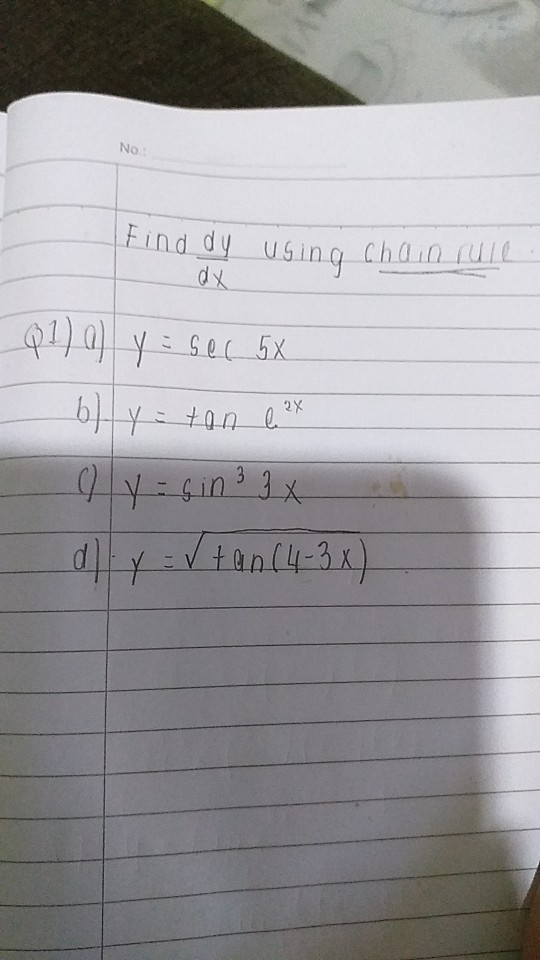 No.:
Find dy/dx using chain rule.
Q1) a) y = sec 5x
b) y = tan e^2x
c) y = sin^3 3x
d) y = √tan(4-3x)